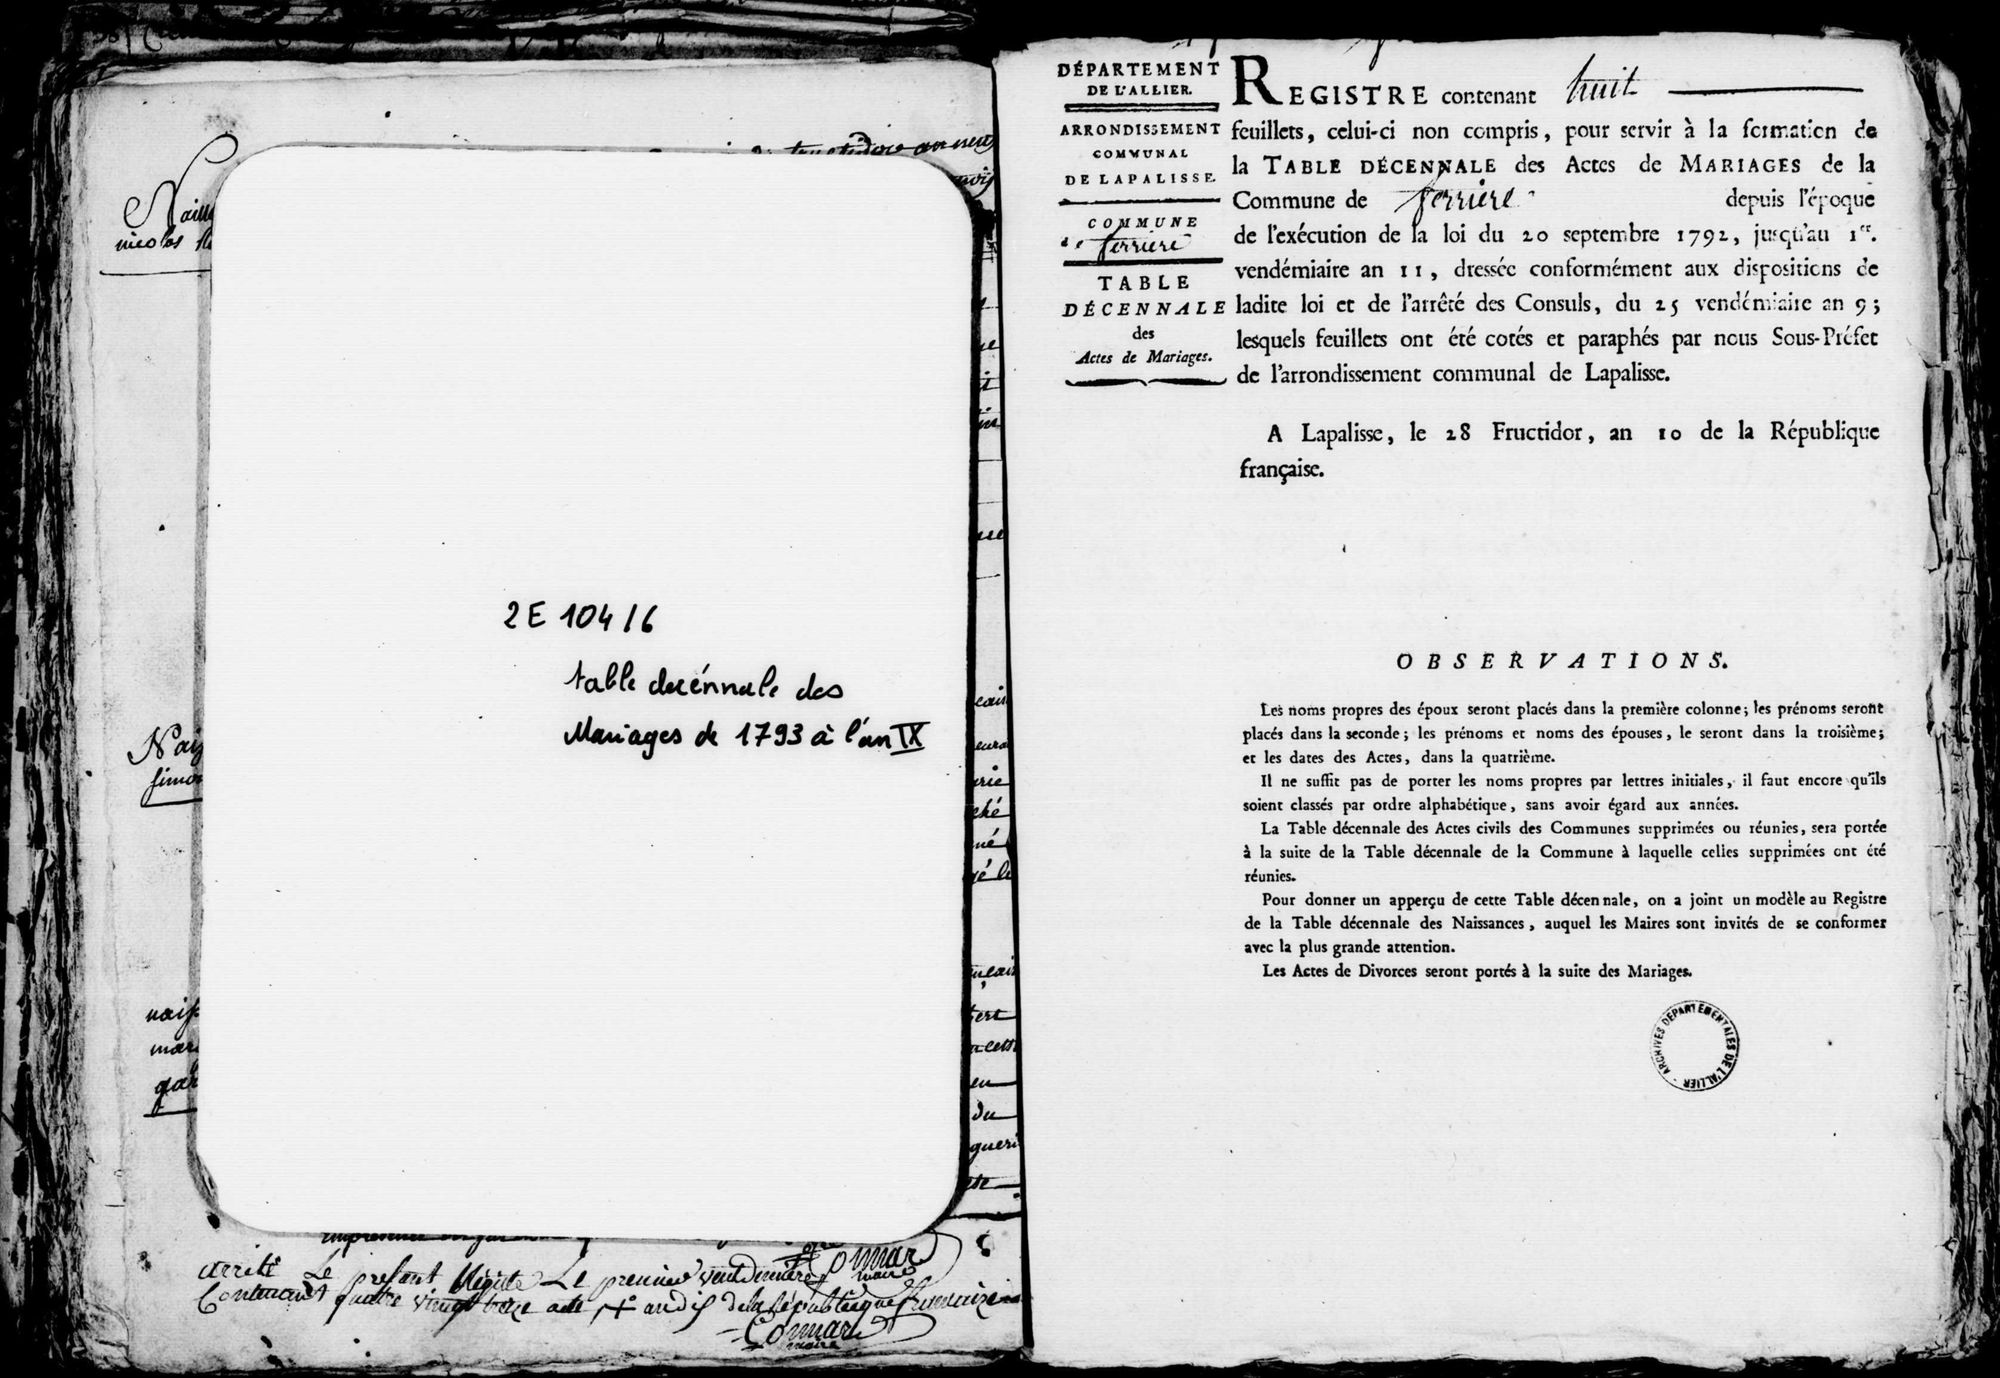 2 E 104 / 6
table decénnale des
Mariages de 1793 à l'an IX
Nais
nicolas
fructidor an neuf
Nais
simon
naiss
mar
gab
arrêté Le présent Régistre Le premier vendémiaire
Contenant quatre vingt treize acte an dix de la république française
Commar
maire
Commar
maire
DÉPARTEMENT
DE L'ALLIER.
ARRONDISSEMENT
COMMUNAL
DE LAPALISSE.
COMMUNE
de ferriere
TABLE
DÉCENNALE
des
Actes de Mariages.
REGISTRE contenant huit
feuillets, celui-ci non compris, pour servir à la formation de
la TABLE DÉCENNALE des Actes de MARIAGES de la
Commune de ferriere depuis l'époque
de l'exécution de la loi du 20 septembre 1792, jusqu'au 1er.
vendémiaire an 11, dressée conformément aux dispositions de
ladite loi et de l'arrêté des Consuls, du 25 vendémiaire an 9;
lesquels feuillets ont été cotés et paraphés par nous Sous-Préfet
de l'arrondissement communal de Lapalisse.
A Lapalisse, le 28 Fructidor, an 10 de la République
française.
OBSERVATIONS.
Les noms propres des époux seront placés dans la première colonne; les prénoms seront
placés dans la seconde; les prénoms et noms des épouses, le seront dans la troisième;
et les dates des Actes, dans la quatrième.
Il ne suffit pas de porter les noms propres par lettres initiales, il faut encore qu'ils
soient classés par ordre alphabétique, sans avoir égard aux années.
La Table décennale des Actes civils des Communes supprimées ou réunies, sera portée
à la suite de la Table décennale de la Commune à laquelle celles supprimées ont été
réunies.
Pour donner un apperçu de cette Table décennale, on a joint un modèle au Registre
de la Table décennale des Naissances, auquel les Maires sont invités de se conformer
avec la plus grande attention.
Les Actes de Divorces seront portés à la suite des Mariages.
ARCHIVES DÉPARTEMENTALES DE L'ALLIER